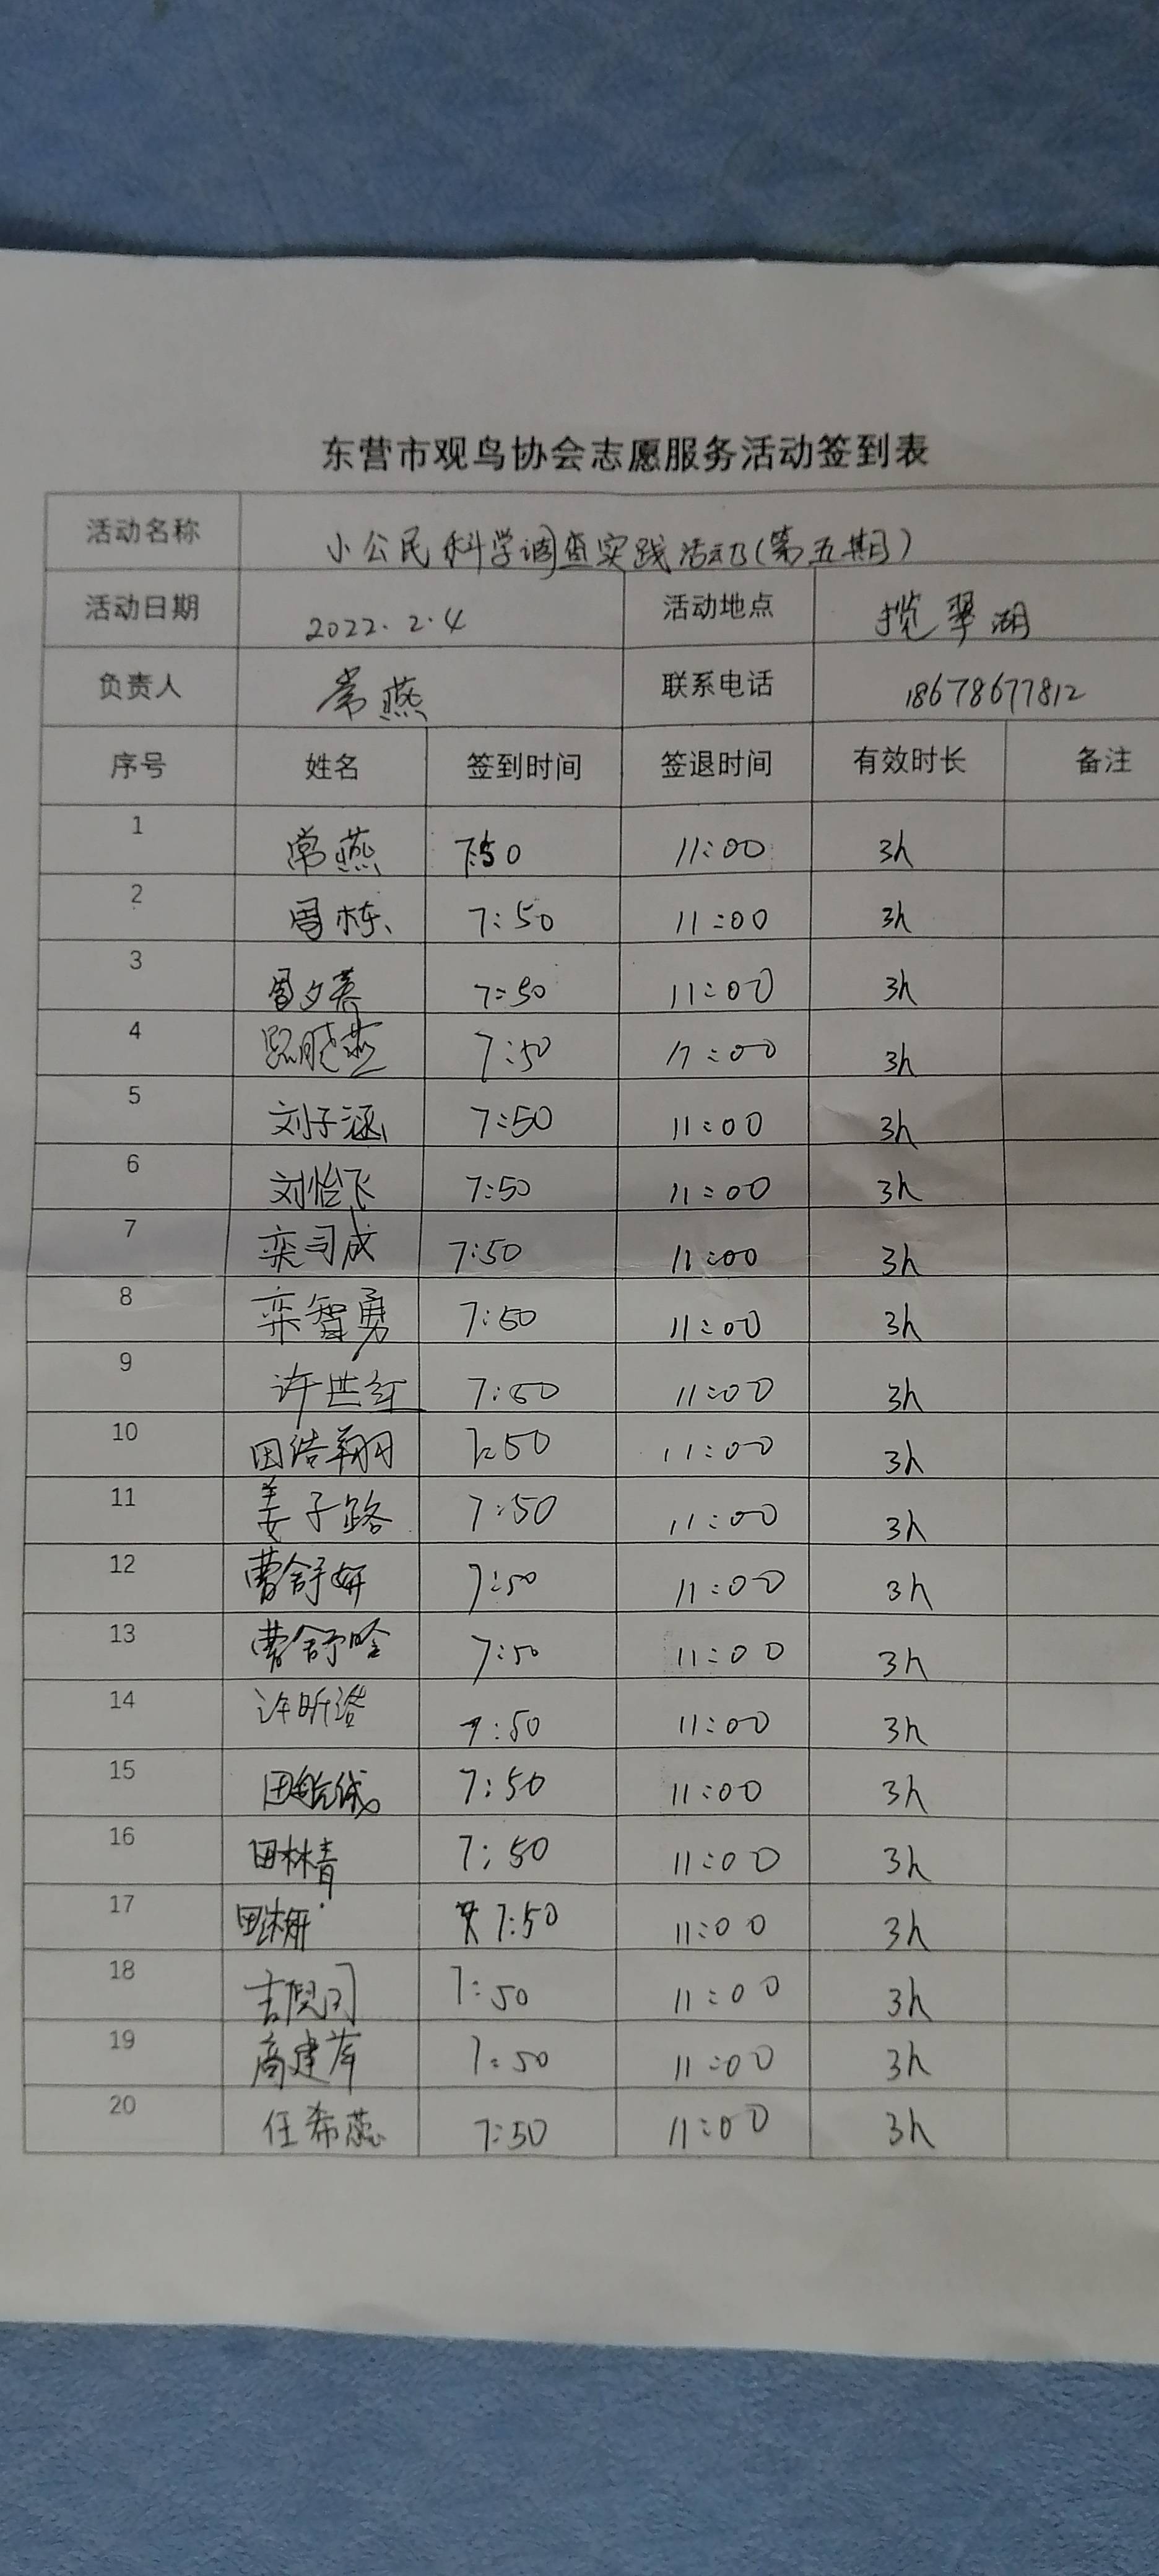 东营市观鸟协会志愿服务活动签到表
活动名称 小公民科学调查实践活动(第五期)
活动日期 2022.2.4 活动地点 揽翠湖
负责人 常燕 联系电话 18678677812
序号 姓名 签到时间 签退时间 有效时长 备注
1 常燕 7:50 11:00 3h
2 周栋 7:50 11:00 3h
3 周夕 7:50 11:00 3h
4 7:50 11:00 3h
5 刘子涵 7:50 11:00 3h
6 刘怡飞 7:50 11:00 3h
7 栾司成 7:50 11:00 3h
8 栾智勇 7:50 11:00 3h
9 许世红 7:50 11:00 3h
10 田浩翔 7:50 11:00 3h
11 姜子路 7:50 11:00 3h
12 曹舒妍 7:50 11:00 3h
13 曹舒晗 7:50 11:00 3h
14 许昕澄 7:50 11:00 3h
15 田 7:50 11:00 3h
16 田林青 7:50 11:00 3h
17 田沐妍 7:50 11:00 3h
18 7:50 11:00 3h
19 高建 7:50 11:00 3h
20 任希蕊 7:50 11:00 3h